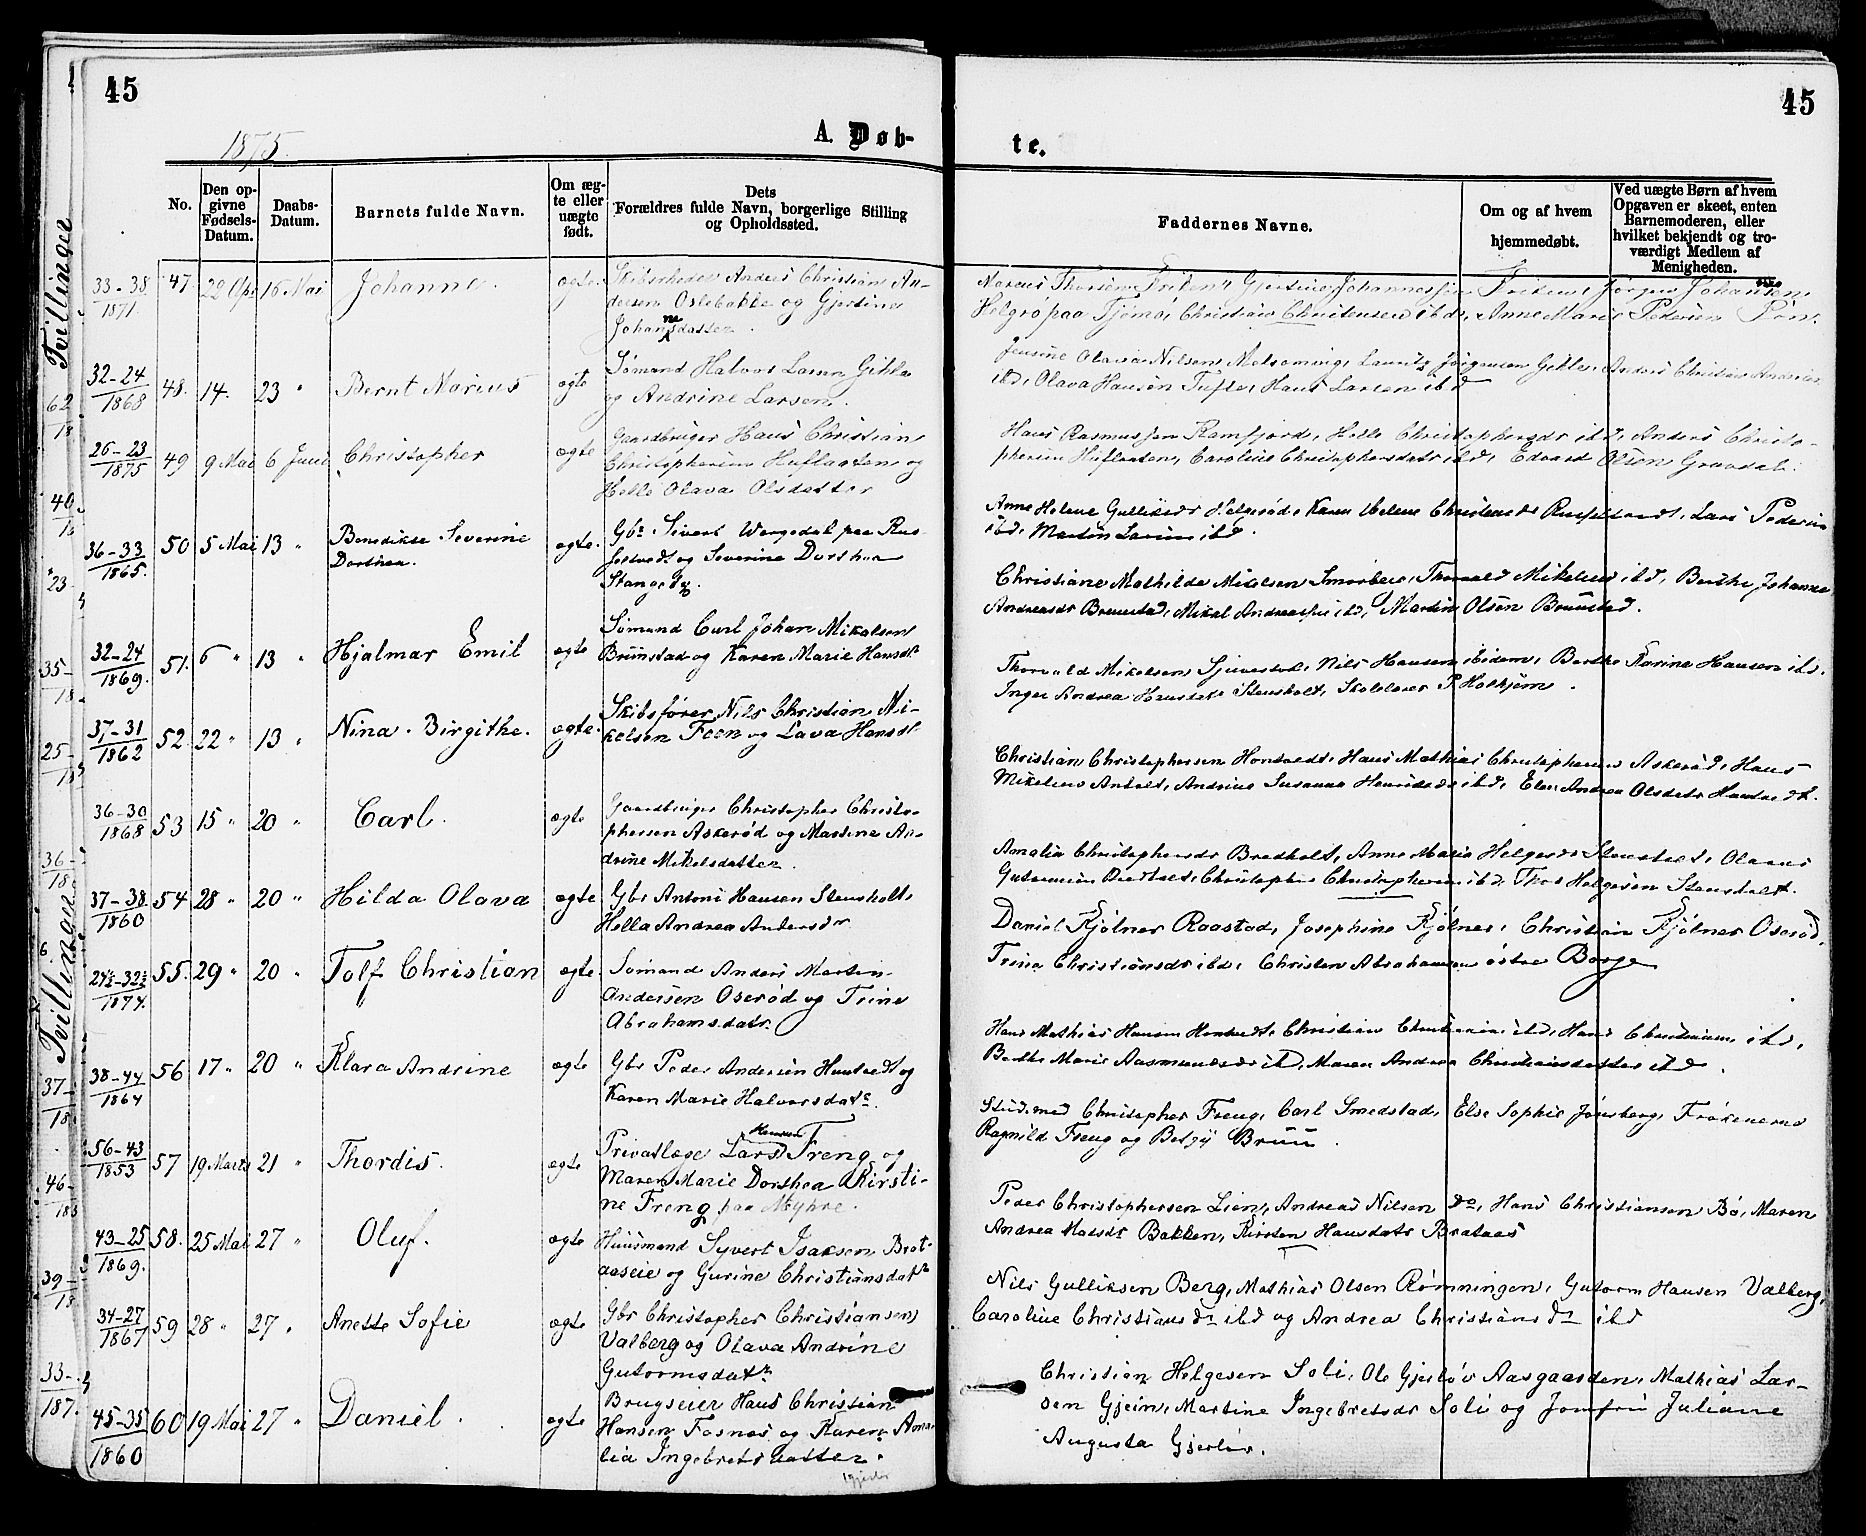 45
45
1875.
A. Døb-
te.
No.
Den op-
givne
Fødsels-
Datum.
Daabs-
Datum.
Barnets fulde Navn.
Om æg-
te eller
uægte
født.
Dets
Forældres fulde Navn, borgerlige Stilling
og Opholdssted.
Faddernes Navne.
Om og af hvem
hjemmedøbt.
Ved uægte Børn af hvem
Opgaven er skeet, enten
Barnemoderen, eller
hvilket bekjendt og tro-
værdigt Medlem af
Menigheden.
Tvillinger
Tvillinger
33-38
1871.
47
16 Mai
Johanne
ægte
Anders Christian An-
dersen Oslebakke og Gjertine
Johannesdatter
Helgrø paa Tjømø, Christian Christensen ibd, Anne Marie Pedersen
32-24
1868
48.
14.
23 "
Bernt Marius
ægte
Sømand Halvor Larsen
og Andrine Larsen.
ibd, Olava Hansen Tufte, Hans Larsen ibd
26-23
1875
49
9 Mai
6 Juni
Christopher
ægte
Gaardbruger Hans Christian
Christophersen Huflaaten og
Helle Olava Olsdatter
Hans Rasmussen Ramfjord, Helle Christophersdr ibd, Anders Christo-
phersen Huflaaten, Caroline Christophersdatr ibd, Edvard Olsen Gravdal.
36-33
1865.
50
5 Mai
13 "
Benedikte Severine
Dorthea.
ægte.
Gbr Sivert Wergedal paa
og Severine Dorthea
Anne Helene Gulliksdr Helgerød, Lars Pedersen
ibd, Martin Larsen ibd.
32-24
1869.
51.
6 "
13 "
Hjalmar Emil
ægte
Sømand Carl Johan Mikelsen
Brunstad og Karen Marie Hansdr
Christiane Mathilde Mikelsen Smørberg, Thorvald Mikelsen ibd, Berthe Johanne
Andreasdr Brunstad, Mikal Andreassen ibd, Martin Olsen Brunstad.
37-31
1862
52.
22 "
13 "
Nina Birgithe.
ægte.
Skibsfører Nils Christian Mi-
kelsen Feen og Lava Hansdr
Thorvald Mikelsen Nils Hansen ibidem, Berthe Karine Hansen ibd.
Inger Andrea Hansdatr Stensholt, Skolelærer P. Holtjem.
36-30
1868
53
15 "
20 "
Carl.
ægte
Gaardbruger Christopher Christo-
phersen Askerød og Martine An-
drine Mikelsdatter.
Christian Christophersen Hontvedt, Hans Mathias Christophersen Askerød, Hans
37-38
1860
54
28 "
20 "
Hilda Olava
ægte
Gbr Antoni Hansen Stensholt
Hella Andrea Andersdr
Amalia Christophersdr Bredholt, Anne Maria Helgesdr Stensholt, Olaves
Gutormsen Bredholt, Christopher Christophersen ibd, Thor Helgesen Stensholt.
24½-32½
1874.
55.
29 "
20 "
Tolf Christian
ægte
Sømand Anders Martin
Andersen Oserød og Trine
Abrahamsdatr.
Daniel Kjølner Raastad, Josephine Kjølner, Christian Kjølner Oserød,
Trina Christiansdr ibd, Christen Abrahamsen østre Borge
38-44
1864
56
17 "
20 "
Klara Andrine
ægte
Gbr Peder Andersen Huntvedt og
Karen Marie Halvorsdatr.
Hans Mathias Hansen Hontvedt, Christian Christiansen ibd, Hans Christiansen ibd,
Berthe Marie Aasmundsdr ibd, Maren Andrea Christiansdatter ibd.
56-43
1853
57
19 Marts
21 "
Thordis.
ægte
Hansen
Privatlæge Lars Freng og
Maren Marie Dorthea Kirsti-
ne Freng paa Myhre.
Stud. med Christopher Freng, Carl Smedstad, Else Sophie Jønsberg, Frøkenerne
Ragnild Freng og Betzy Bruu.
43-25
1869.
58.
25 Mai
27 "
Oluf.
ægte
Huusmand Syvert Isaksen Brat-
aaseie og Gurine Christiansdatr
Peder Christophersen Lien, Andreas Nilsen do, Hans Christiansen Bø, Maren
Andrea Madsdr Bakken, Kirsten Hansdatr Brataas
34-27
1867
59
28 "
27 "
Anette Sofie
ægte
Gbr Christopher Christiansen
Valberg og Olava Andrine
Gutormsdatr
Nils Gulliksen Berg, Mathias Olsen Rømningen, Gutorm Hansen Valberg,
Caroline Christiansdr ibd og Andrea Christiansdr ibd
45-35
1860
60
19 Mai
27 "
Daniel.
ægte
Brugseier Hans Christian
Hansen Fosnæs og Karen Ama-
lia Ingebretsdatter.
Christian Helgesen Soli, Ole Gjerløv Aasgaarden, Mathias Lar-
sen Gjein, Martine Ingebretsdr Soli og Jomfru Juliane
Augusta Gjerløv.